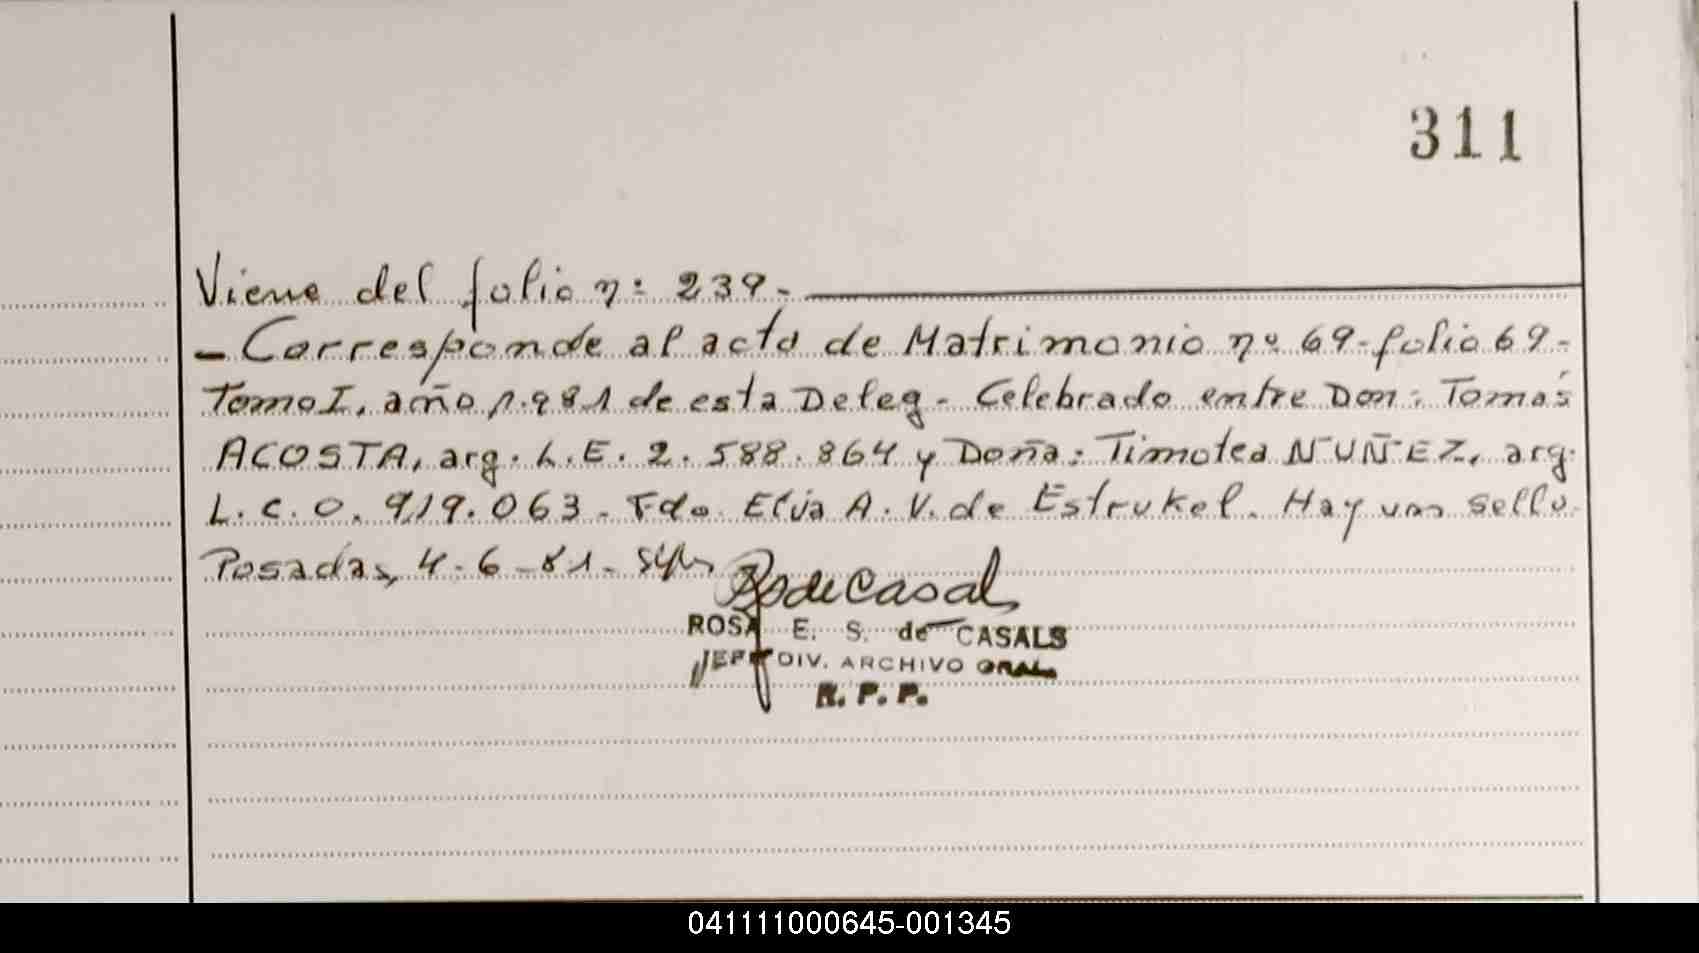 311
Viene del folio nº 239.-
- Corresponde al acta de Matrimonio nº 69-folio 69-
Tomo I, año 1.981 de esta Deleg- Celebrado entre Don: Tomás
ACOSTA, arg. L.E. 2.588.864 y Doña: Timotea NUÑEZ, arg.
L.C. 0.919.063- Fdo. Elva A. V. de Estrukel. Hay un sello
Posadas, 4-6-81-
ROSA E. S. de CASALS
JEFE DIV. ARCHIVO GRAL.
R. P. P.
041111000645-001345